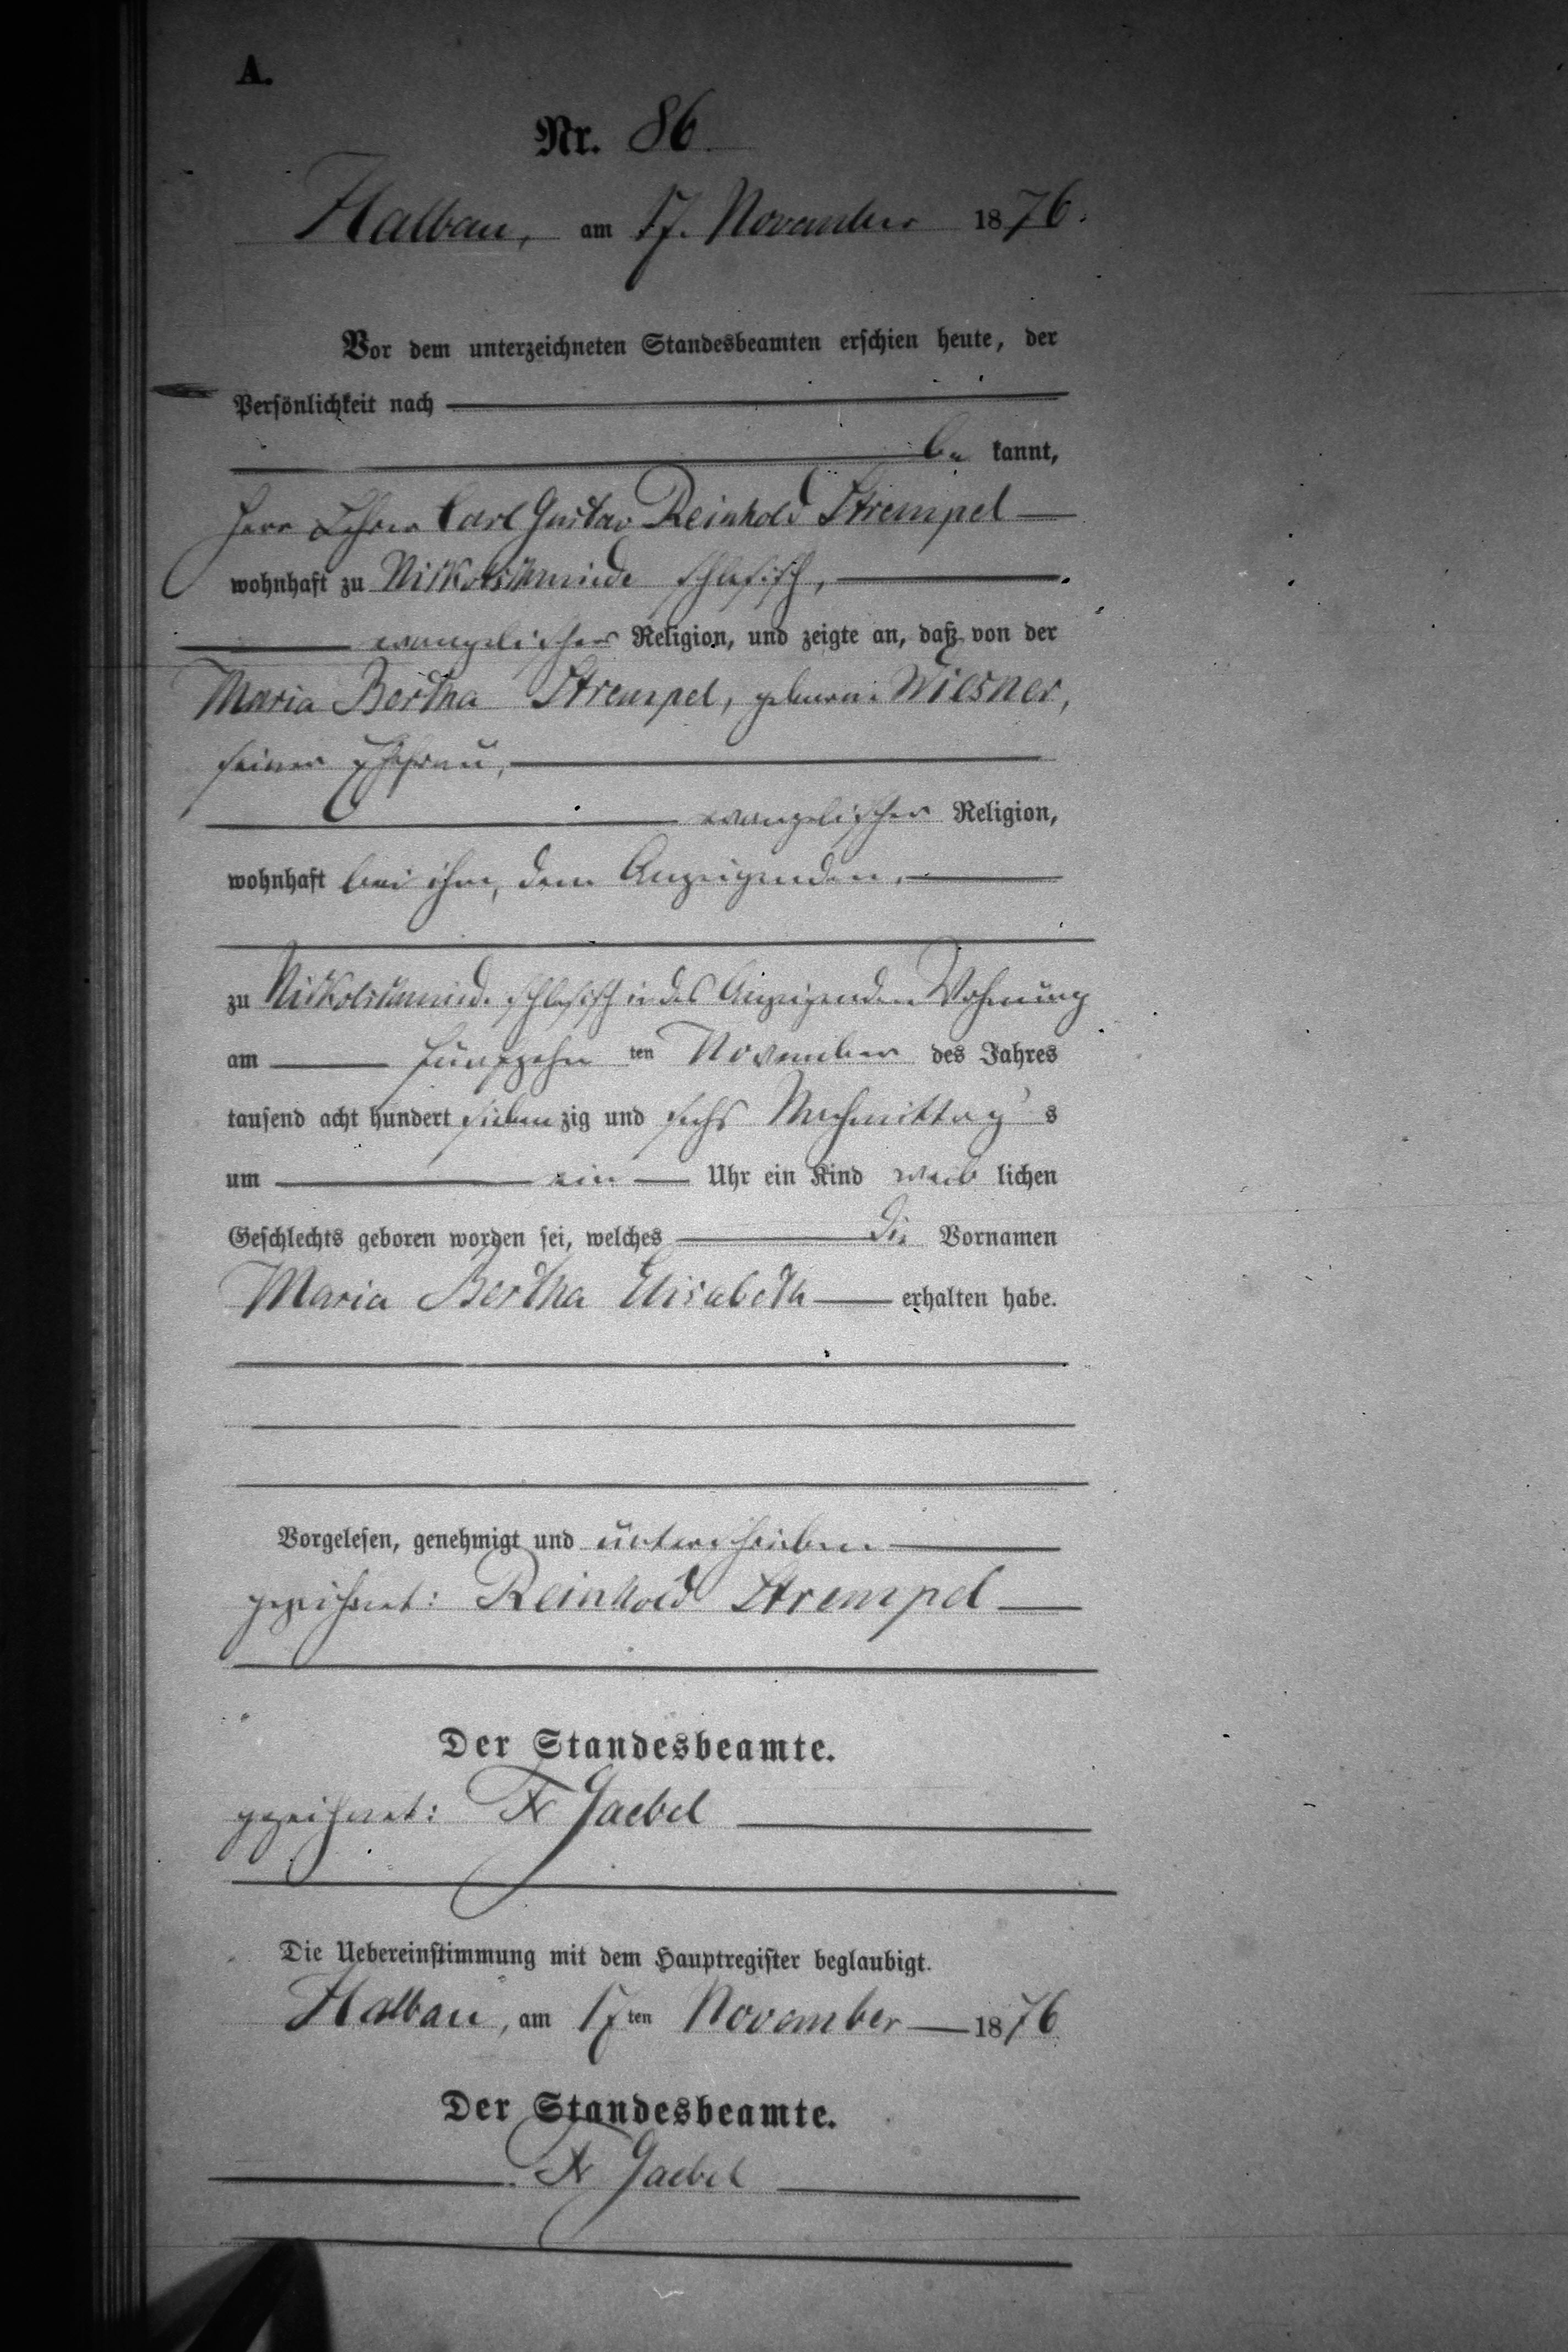 A.
Nr. 86.
Halbau, am 17. November 1876.
Vor dem unterzeichneten Standesbeamten erschien heute, der
Persönlichkeit nach
be kannt,
Herr Lehrer Carl Gustav Reinhold Strempel
wohnhaft zu Nikolschmiede schlesisch,
evangelischer Religion, und zeigte an, daß von der
Maria Bertha Strempel, geborene Wiesner,
seiner Ehefrau,
evangelischer Religion,
wohnhaft bei ihm, dem Anzeigenden,
zu Nikolschmiede schlesisch in des Anzeigenden Wohnung
am fünfzehn ten November des Jahres
tausend acht hundert sieben zig und sechs Nachmittag s
um ein Uhr ein Kind weib lichen
Geschlechts geboren worden sei, welches die Vornamen
Maria Bertha Elisabeth erhalten habe.
Vorgelesen, genehmigt und unterschrieben
gezeichnet: Reinhold Strempel
Der Standesbeamte.
gezeichnet: Fr Gaebel
Die Uebereinstimmung mit dem Hauptregister beglaubigt.
Halbau, am 17 ten November 1876
Der Standesbeamte.
Fr Gaebel